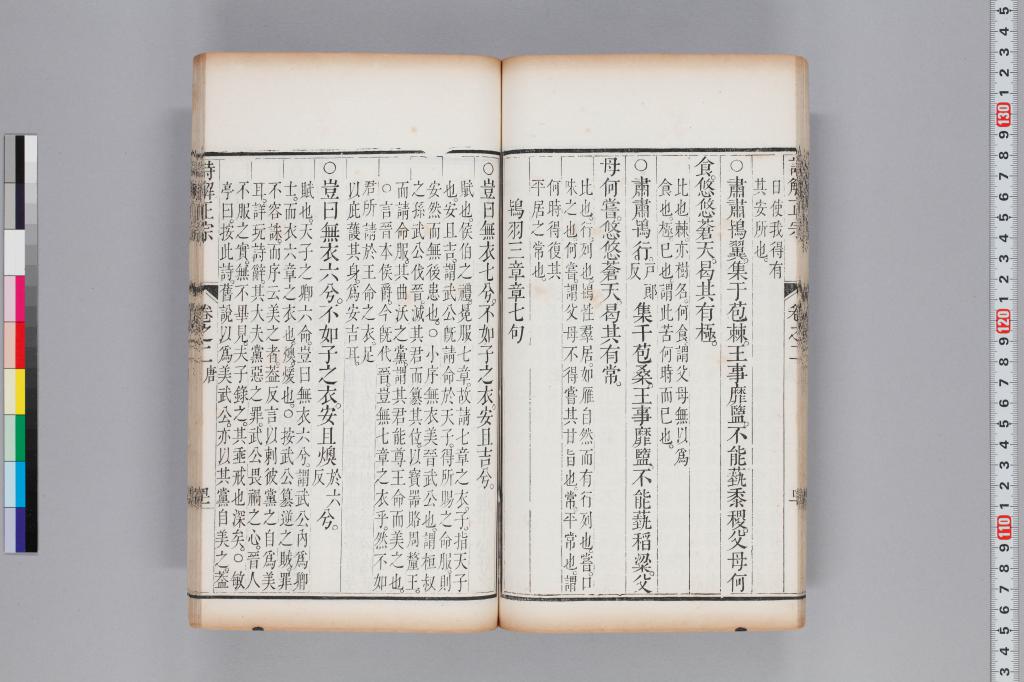 日使我得有
其安所也
○肅肅鴇翼。集于苞棘。王事靡盬。不能蓺黍稷。父母何
食。悠悠蒼天。曷其有極。
比也。棘亦樹名。何食謂父母無以爲
食也。極巳也。謂此苦何時而巳也。
○肅肅鴇行。戶郎反集于苞桑。王事靡盬。不能蓺稻粱。父
母何嘗。悠悠蒼天。曷其有常。
比也。行列也。鴇性羣居。如雁自然而有行列也。嘗口
味之也。何嘗。謂父母不得嘗其甘旨也。常。平常也。謂
何時得復其
平居之常也。
鴇羽三章章七句
○豈曰無衣七兮。不如子之衣。安且吉兮。
賦也。侯伯之禮。冕服七章。故請七章之衣。子。指天子
也。安且吉。謂武公旣請命於天子。得所賜之命服。則
安然而無後患也。○小序無衣美晉武公也。謂桓叔
之孫武公伐晉。滅其君而篡其位。以寶器賂周釐王。
而請命服。其曲沃之黨。謂其君能尊王命而美之也。
○言晉本侯爵。今旣代晉。豈無七章之衣乎。然不如
君所請於王命之衣。足
以庇䕶其身。爲安吉耳。
○豈曰無衣六兮。不如子之衣。安且燠於六反兮。
賦也。天子之卿六命。豈曰無衣六兮。謂武公內爲卿
士。而衣六章之衣也。燠煖也。○按武公簒逆之賊。罪
不容誅。而序云美之者。葢反言以刺彼黨之自爲美
耳。詳玩詩辭。其大夫黨惡之罪。武公畏禍之心。晉人
不服之實。無不畢見。夫子錄之。其埀戒也深矣。○敏
亭曰。按此詩舊說以爲美武公。亦以其黨自美之。葢
詩解正宗
卷之二
唐